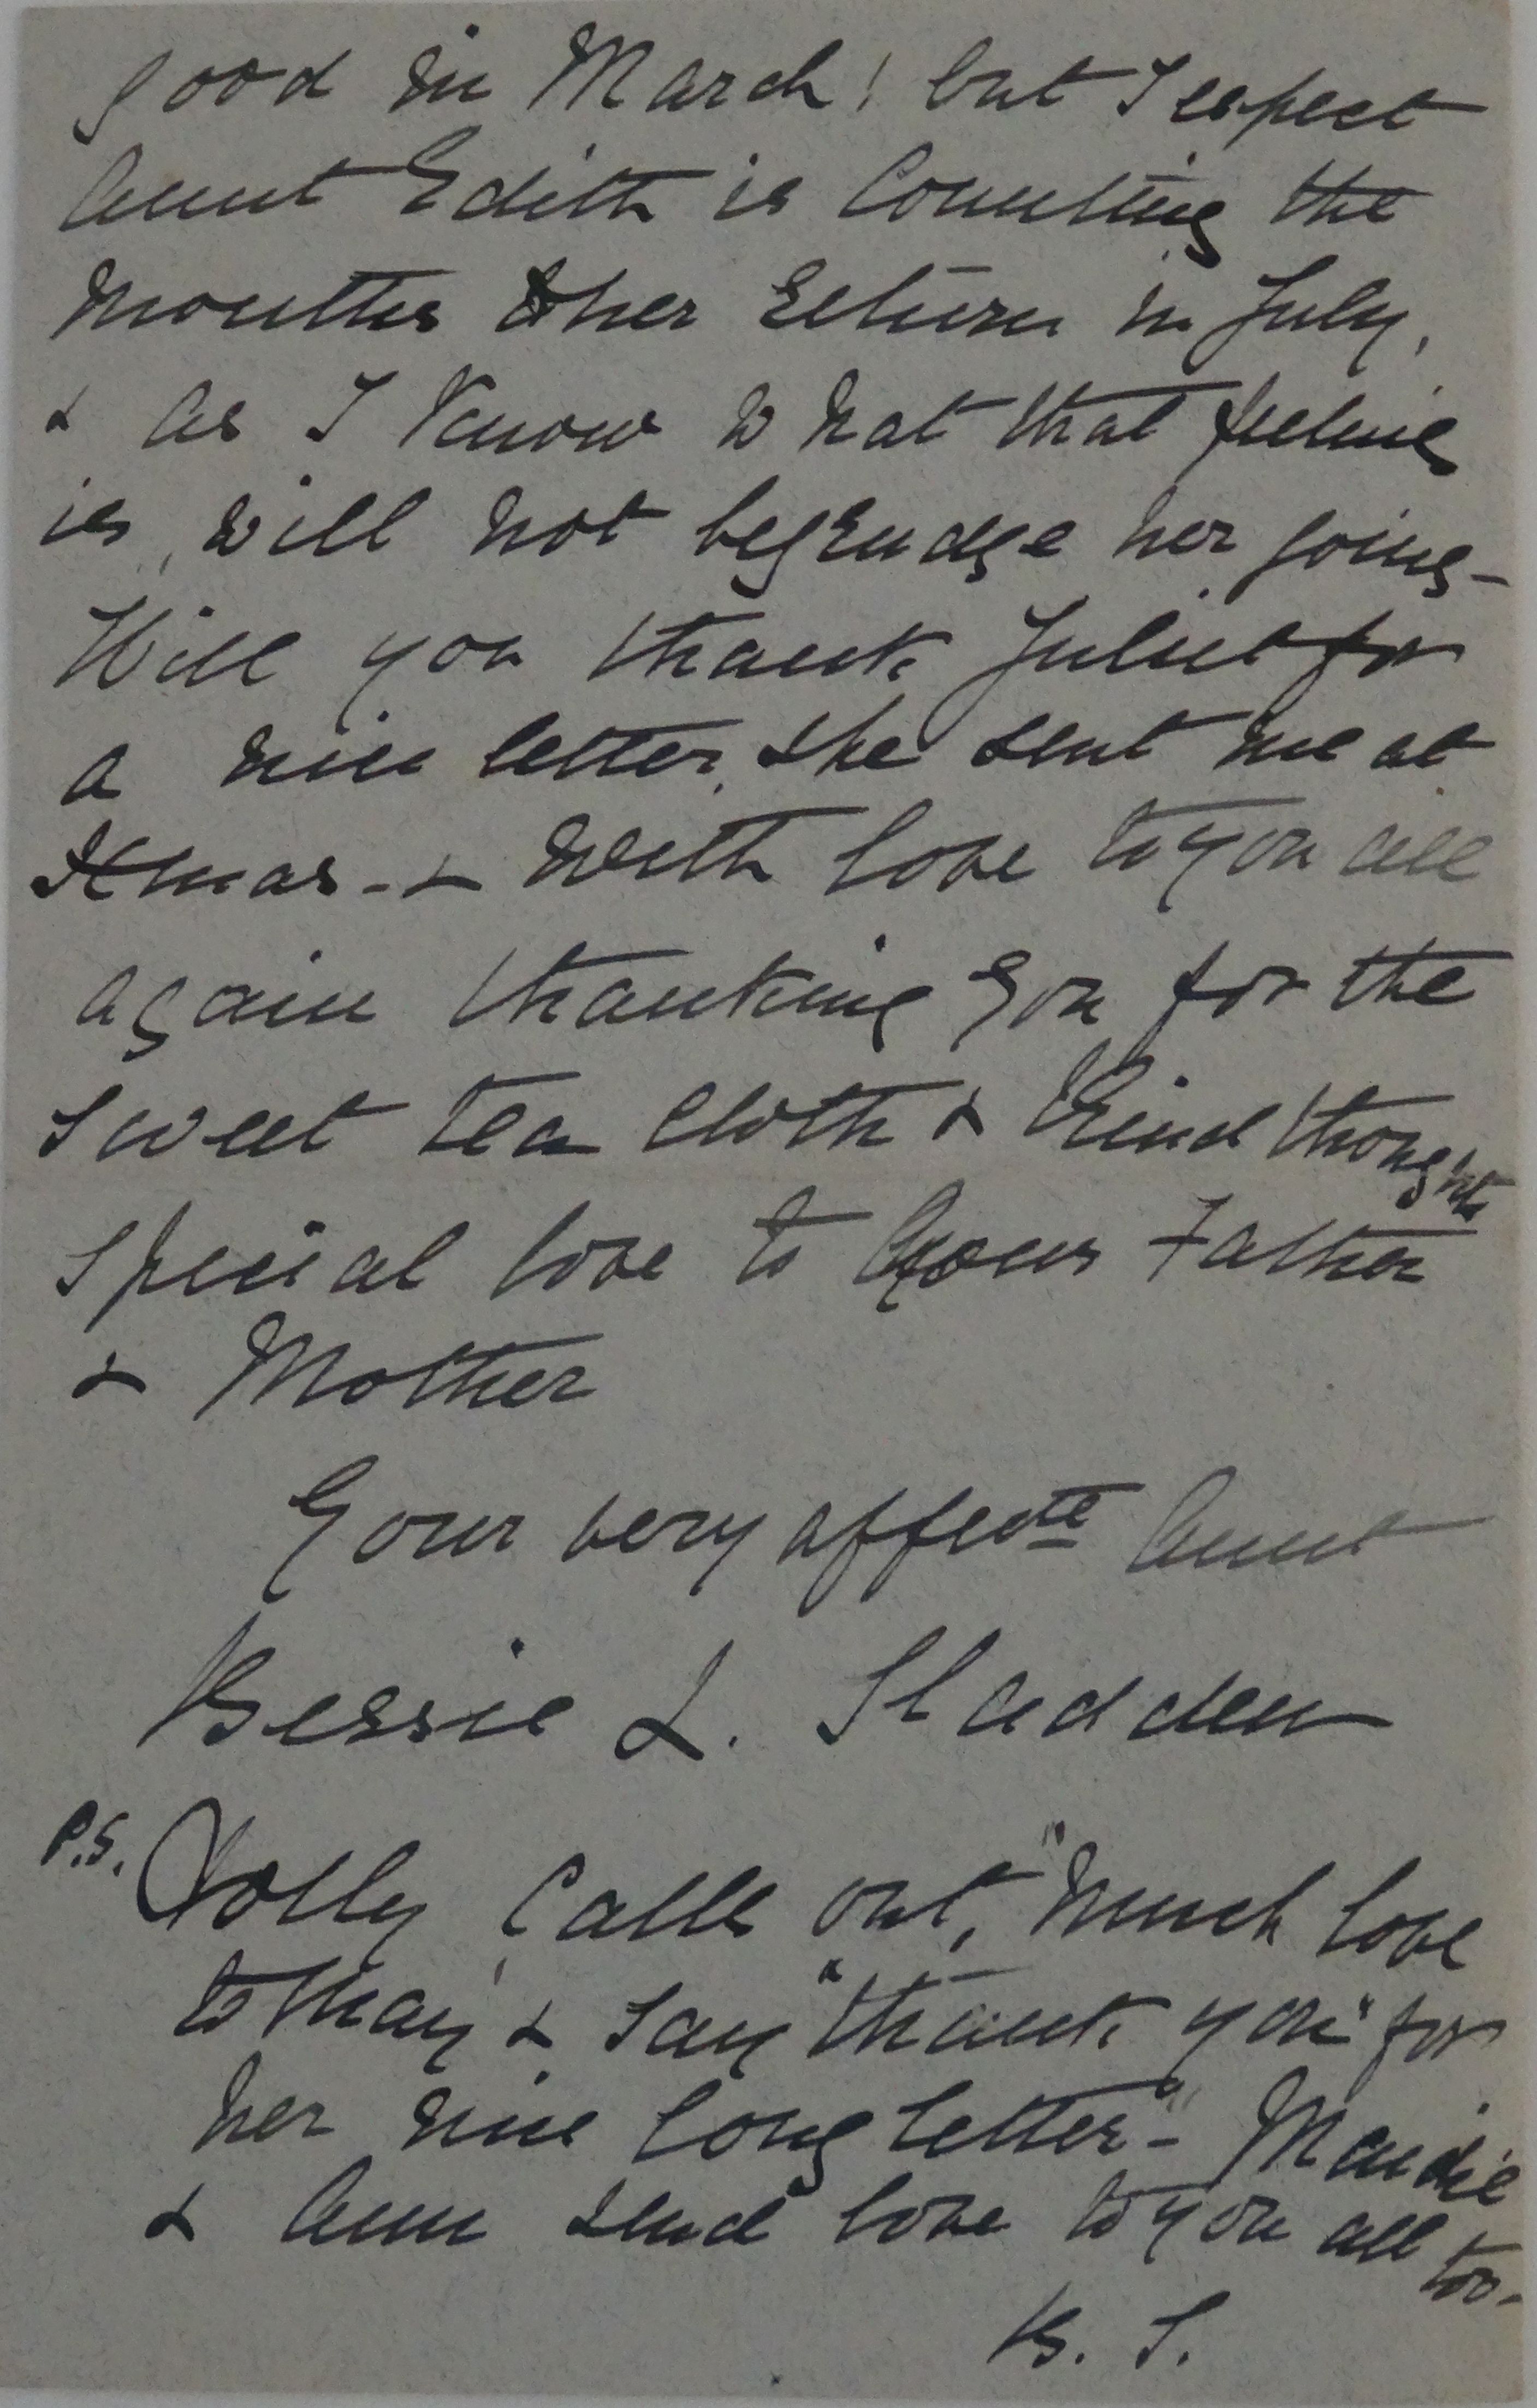 good in March! but I expect
Aunt Edith is counting the
months to her return in July,
& as I know what that feeling
is, will not begrudge her going -
Will you thank Juliet for
a nice letter, she sent me at
Xmas - & with love to you all
again thanking you for the
sweet tea cloth & kind thought
special love to your Father
& Mother
Your very affecte Aunt
Bessie L. Sladden
P.S. Dolly calls out, "much love
to May & say "thank you" for
her nice long letter" - Maudie
& Ann send love to you all too -
B. S.